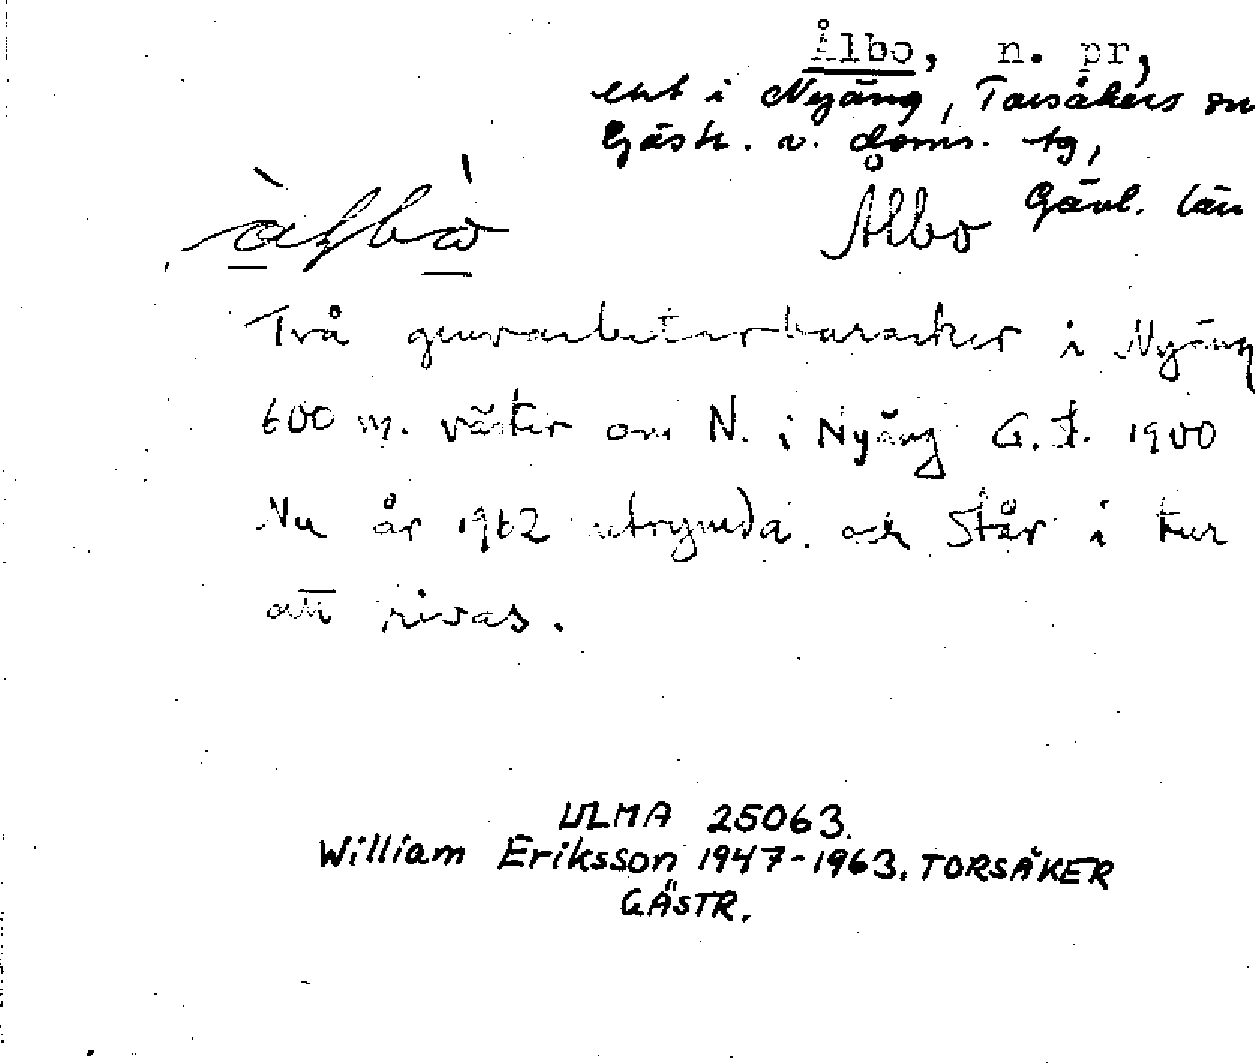 Ålbo, n. pr,
ent i Nyäng, Torsåkers sn
Gästr. v. doms. tg,
Gävl. län
Ålbo
Två gruvarbetarbaracker i Nyäng
600 m. väster om N. i Nyäng G. F. 1900
Nu år 1962 utrymda och står i tur
att rivas.
ULMA 25063.
William Eriksson 1947-1963. TORSÅKER
GÄSTR.